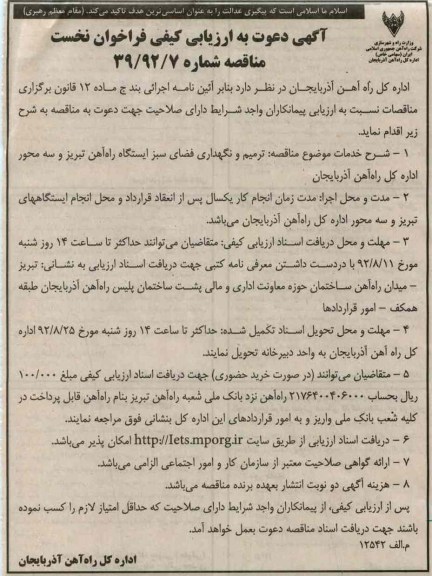 اسلام ما اسلامی است که پیگیری عدالت را به عنوان اساسی‌ترین هدف تاکید می‌کند. (مقام معظم رهبری)
وزارت راه و شهرسازی
شرکت راه‌آهن جمهوری اسلامی
ایران (سهامی خاص)
اداره کل راه‌آهن آذربایجان
آگهی دعوت به ارزیابی کیفی فراخوان نخست
مناقصه شماره ۳۹/۹۲/۷
اداره کل راه آهن آذربایجان در نظر دارد بنابر آئین نامه اجرائی بند چ ماده ۱۲ قانون برگزاری
مناقصات نسبت به ارزیابی پیمانکاران واجد شرایط دارای صلاحیت جهت دعوت به مناقصه به شرح
زیر اقدام نماید.
۱ – شرح خدمات موضوع مناقصه: ترمیم و نگهداری فضای سبز ایستگاه راه‌آهن تبریز و سه محور
اداره کل راه‌آهن آذربایجان
۲ – مدت و محل اجرا: مدت زمان انجام کار یکسال پس از انعقاد قرارداد و محل انجام ایستگاههای
تبریز و سه محور اداره کل راه‌آهن آذربایجان می‌باشد.
۳ – مهلت و محل دریافت اسناد ارزیابی کیفی: متقاضیان می‌توانند حداکثر تا ساعت ۱۴ روز شنبه
مورخ ۹۲/۸/۱۱ با دردست داشتن معرفی نامه کتبی جهت دریافت اسناد ارزیابی به نشانی: تبریز
– میدان راه‌آهن ساختمان حوزه معاونت اداری و مالی پشت ساختمان پلیس راه‌آهن آذربایجان طبقه
همکف – امور قراردادها
۴ – مهلت و محل تحویل اسناد تکمیل شده: حداکثر تا ساعت ۱۴ روز شنبه مورخ ۹۲/۸/۲۵ اداره
کل راه آهن آذربایجان به واحد دبیرخانه تحویل نمایند.
۵ – متقاضیان می‌توانند (در صورت خرید حضوری) جهت دریافت اسناد ارزیابی کیفی مبلغ ۱۰۰/۰۰۰
ریال بحساب ۲۱۷۶۴۰۰۴۰۶۰۰۰ راه‌آهن نزد بانک ملی شعبه راه‌آهن تبریز بنام راه‌آهن قابل پرداخت در
کلیه شعب بانک ملی واریز و به امور قراردادهای این اداره کل بنشانی فوق مراجعه نمایند.
۶ – دریافت اسناد ارزیابی از طریق سایت http://Iets.mporg.ir امکان پذیر می‌باشد.
۷ – ارائه گواهی صلاحیت معتبر از سازمان کار و امور اجتماعی الزامی می‌باشد.
۸ – هزینه آگهی دو نوبت انتشار بعهده برنده مناقصه می‌باشد.
پس از ارزیابی کیفی، از پیمانکاران واجد شرایط دارای صلاحیت که حداقل امتیاز لازم را کسب نموده
باشند جهت دریافت اسناد مناقصه دعوت بعمل خواهد آمد.
م.الف ۱۲۵۴۲
اداره کل راه‌آهن آذربایجان